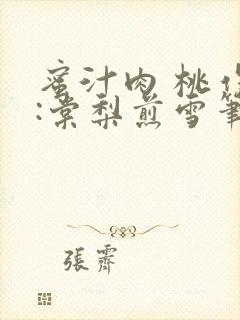 蜜汁肉桃作
:棠梨煎雪筆
張霽